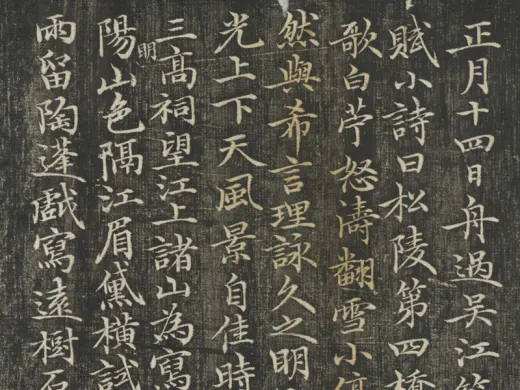 正月十四日舟過吳江
賦小詩曰松陵第四橋
歌白苧怒濤翻雪小停
然與希言理詠久之明
光上下天風景自佳時
三高祠望江上諸山為寫
陽明山色隔江眉黛橫試
雨留陶蓬戲寫遠樹石